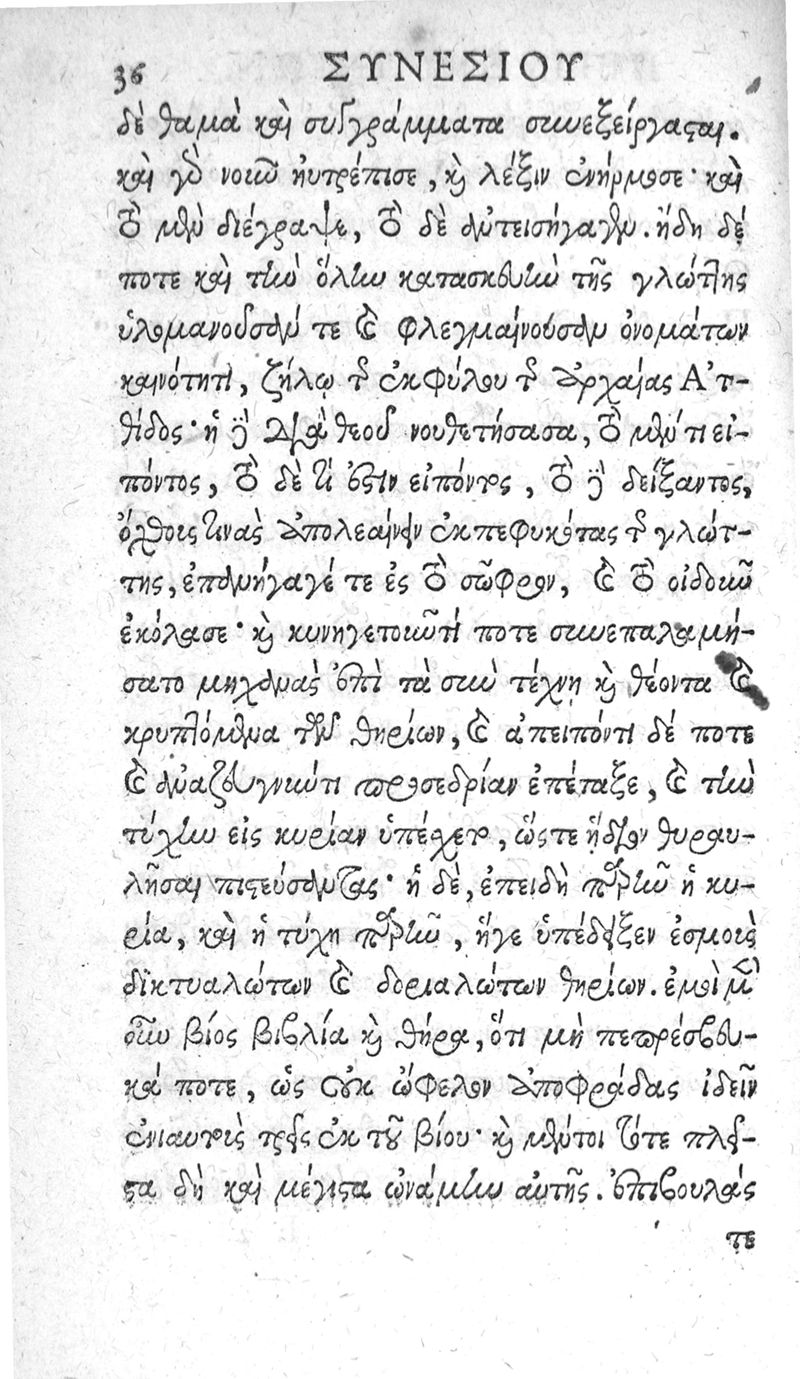 36 ΣΥΝΕΣΙΟΥ
δὲ θαμὰ καὶ συγγράμματα συνεξείργασται.
καὶ γὸ νοιῦ ηὐτρέπισε, καὶ λέξιν ἐνήρμοσε· καὶ
τὸ μὲν διέγραψε, τὸ δὲ ἀντεισήγαγεν. ἤδη δέ
ποτε καὶ τὴν ὅλην κατασκευὴν τῆς γλώττης
ὑλομανοῦσάν τε καὶ φλεγμαίνουσαν ὀνομάτων
καινότητι, ζήλῳ τῆς ἐκφύλου τῆς ἀρχαίας Ἀτ-
θίδος· ἡ δὲ διὰ θεοῦ νουθετήσασα, τὸ μέν τι εἰ-
πόντος, τὸ δὲ τί ἐστιν εἰπόντος, τὸ δὲ δείξαντος,
ὄχθους τινὰς ἀπολεαίνειν ἐκπεφυκότας τῆς γλώτ-
της, ἐπανήγαγέ τε ἐς τὸ σῶφρον, καὶ τὸ οἰδοῦν
ἐκόλασε· καὶ κυνηγετοῦντί ποτε συνεπαλαμή-
σατο μηχανὰς ἐπὶ τὰ σὺν τέχνῃ καὶ θέοντα καὶ
κρυπτόμενα τῶν θηρίων, καὶ ἀπειπόντι δέ ποτε
καὶ ἀναζευγνιῶτι προσεδρίαν ἐπέταξε, καὶ τὴν
τύχην εἰς κυρίαν ὑπέσχετο, ὥςτε ἥδιον θυραυ-
λῆσαι πιστεύσαντας· ἡ δὲ, ἐπειδὴ παρῆν ἡ κυ-
ρία, καὶ ἡ τύχη παρῆν, ἥγε ὑπέδειξεν ἑσμοὺς
δικτυαλώτων καὶ δοριαλώτων θηρίων. ἐμοὶ μὲν
οὖν βίος βιβλία καὶ θήρα, ὅτι μὴ πεπρέσβευ-
κά ποτε, ὡς οὐκ ὤφελον ἀποφράδας ἰδεῖν
ἐνιαυτοὺς τρεῖς ἐκ τοῦ βίου· καὶ μέντοι τότε πλεῖ-
στα δὴ καὶ μέγιστα ὠνάμην αὐτῆς. ἐπιβουλάς
τε